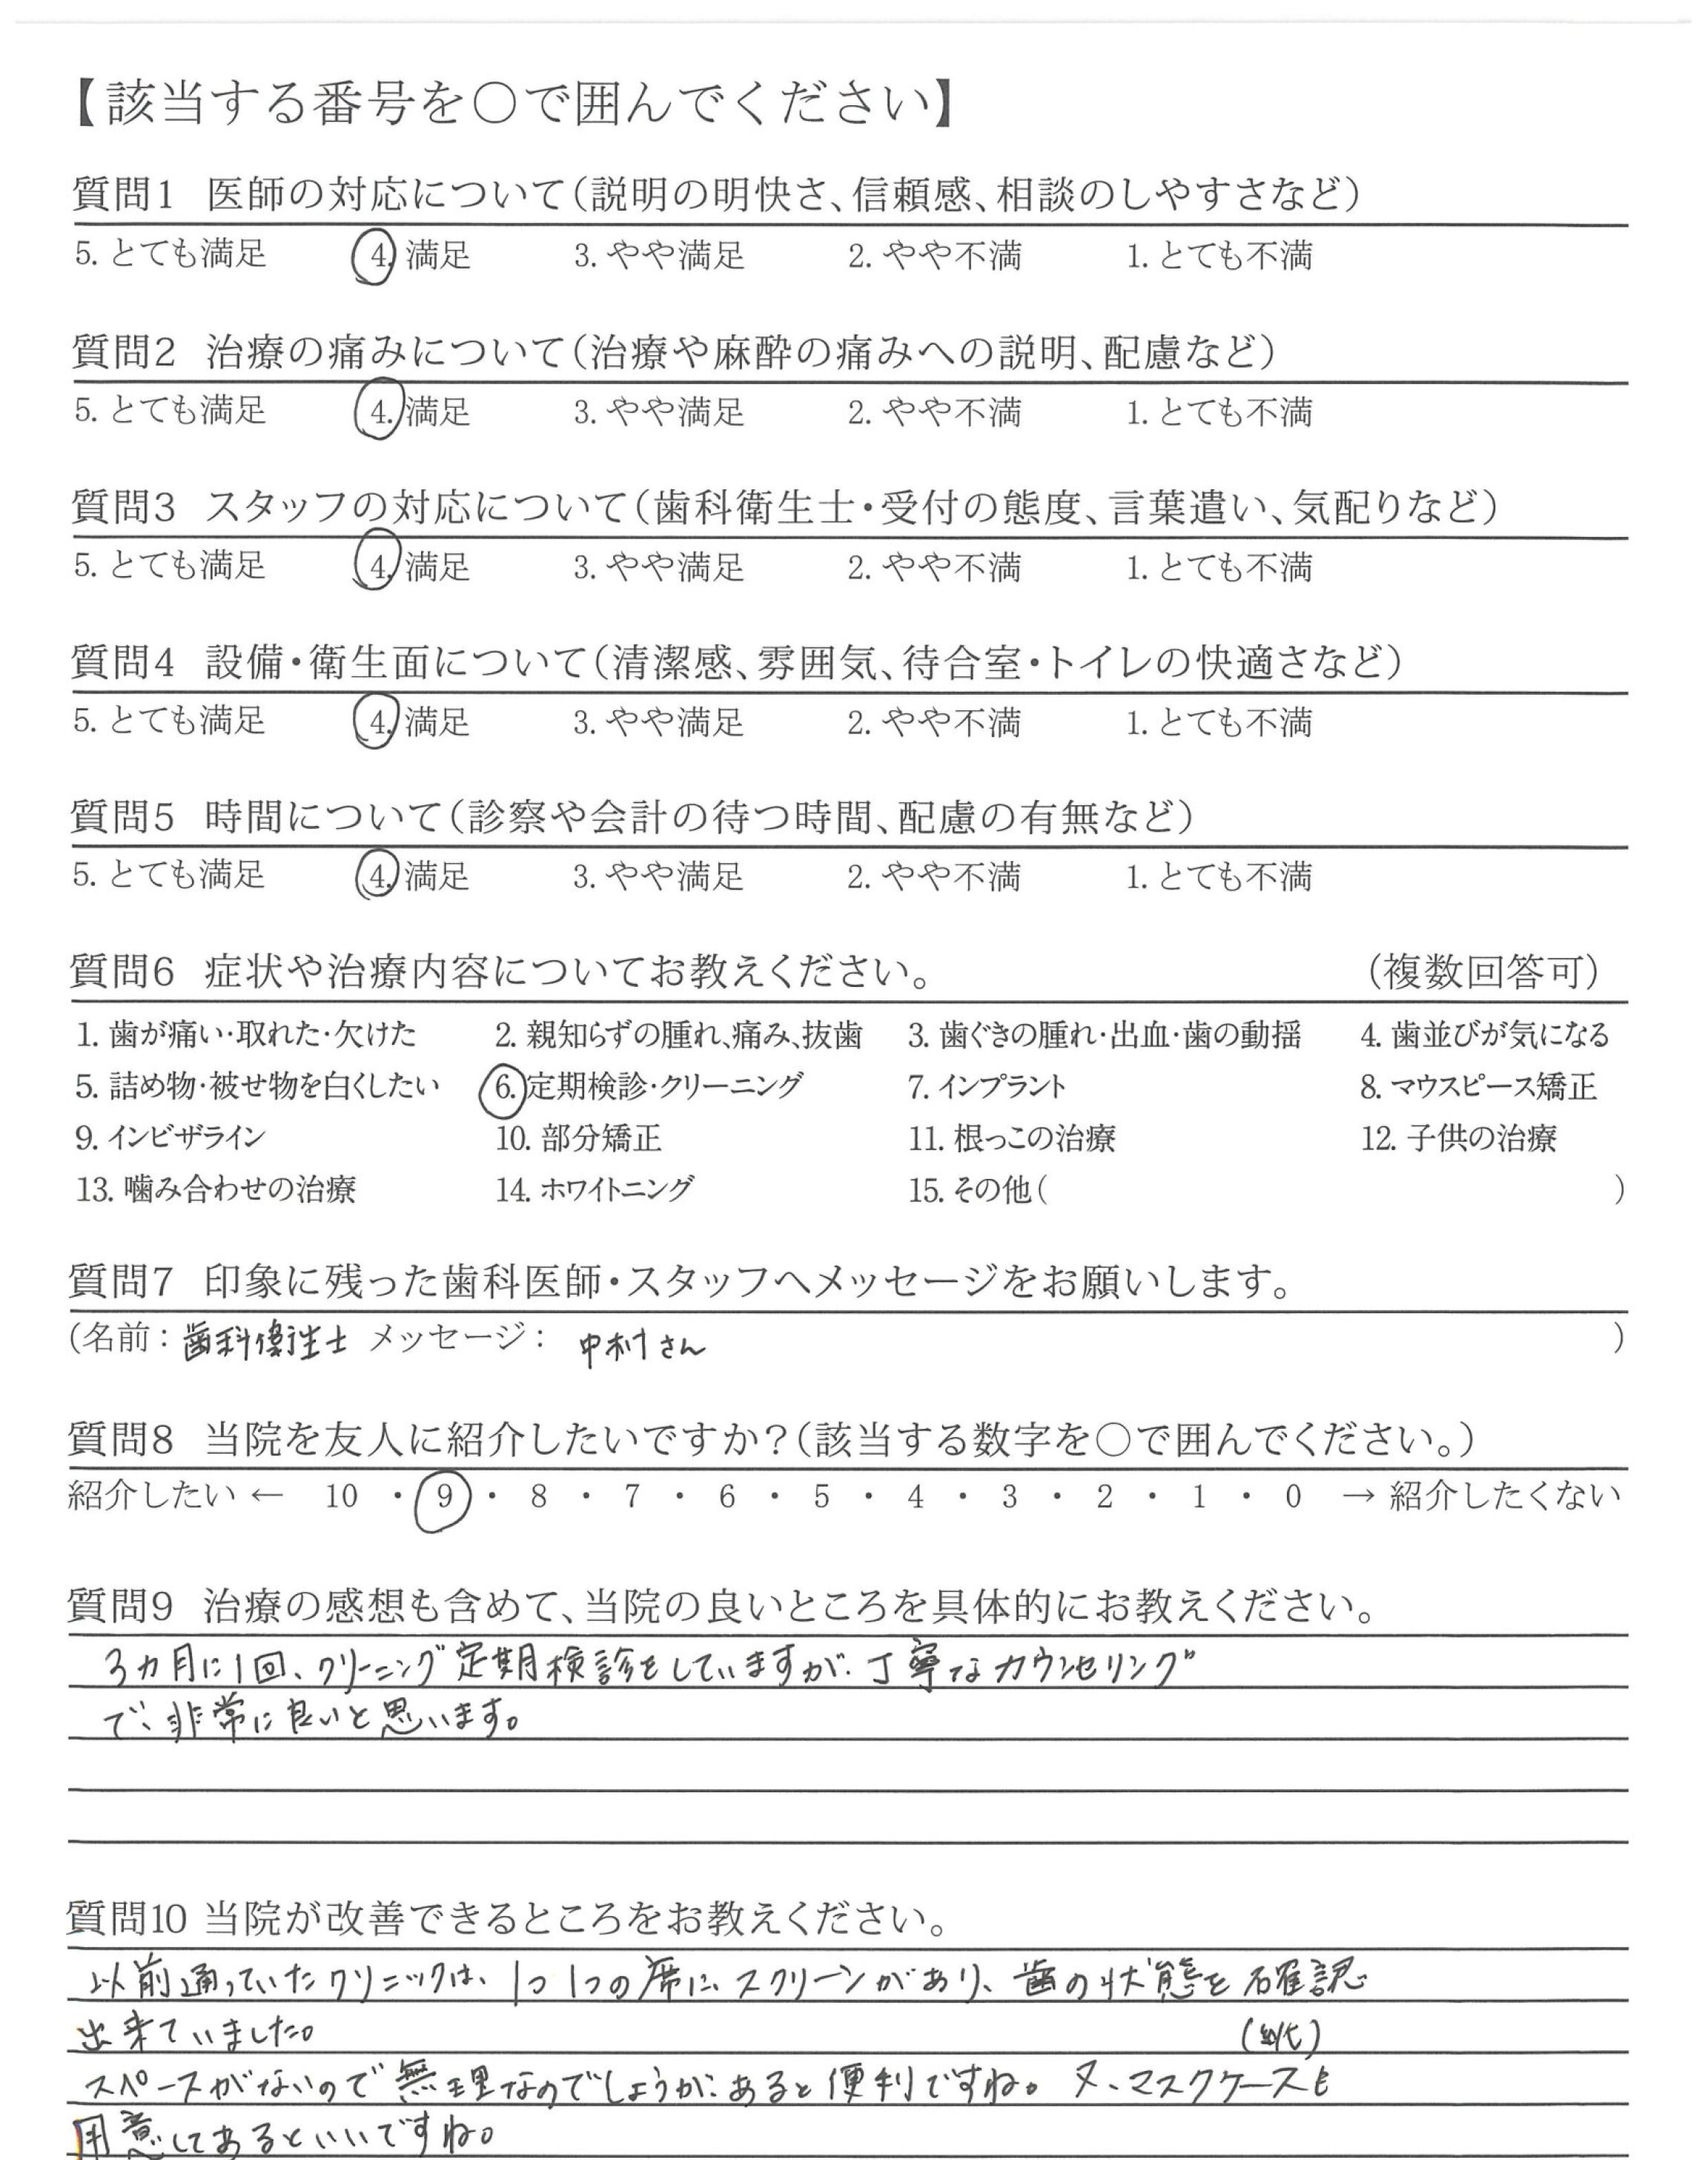 【該当する番号を○で囲んでください】
質問1 医師の対応について(説明の明快さ、信頼感、相談のしやすさなど)
5. とても満足 4. 満足 3. やや満足 2. やや不満 1. とても不満
質問2 治療の痛みについて(治療や麻酔の痛みへの説明、配慮など)
5. とても満足 4. 満足 3. やや満足 2. やや不満 1. とても不満
質問3 スタッフの対応について(歯科衛生士・受付の態度、言葉遣い、気配りなど)
5. とても満足 4. 満足 3. やや満足 2. やや不満 1. とても不満
質問4 設備・衛生面について(清潔感、雰囲気、待合室・トイレの快適さなど)
5. とても満足 4. 満足 3. やや満足 2. やや不満 1. とても不満
質問5 時間について(診察や会計の待つ時間、配慮の有無など)
5. とても満足 4. 満足 3. やや満足 2. やや不満 1. とても不満
質問6 症状や治療内容についてお教えください。 (複数回答可)
1. 歯が痛い・取れた・欠けた 2. 親知らずの腫れ、痛み、抜歯 3. 歯ぐきの腫れ・出血・歯の動揺 4. 歯並びが気になる
5. 詰め物・被せ物を白くしたい 6. 定期検診・クリーニング 7. インプラント 8. マウスピース矯正
9. インビザライン 10. 部分矯正 11. 根っこの治療 12. 子供の治療
13. 噛み合わせの治療 14. ホワイトニング 15. その他( )
質問7 印象に残った歯科医師・スタッフへメッセージをお願いします。
(名前：歯科衛生士 メッセージ： 中村さん )
質問8 当院を友人に紹介したいですか？(該当する数字を○で囲んでください。)
紹介したい ← 10 ・ 9 ・ 8 ・ 7 ・ 6 ・ 5 ・ 4 ・ 3 ・ 2 ・ 1 ・ 0 → 紹介したくない
質問9 治療の感想も含めて、当院の良いところを具体的にお教えください。
3カ月に1回、クリーニング定期検診をしていますが、丁寧なカウンセリング
で、非常に良いと思います。
質問10 当院が改善できるところをお教えください。
以前通っていたクリニックは、1つ1つの席に、スクリーンがあり、歯の状態を確認
出来ていました。
スペースがないので無理なのでしょうが、あると便利ですね。又、マスクケースも
用意してあるといいですね。